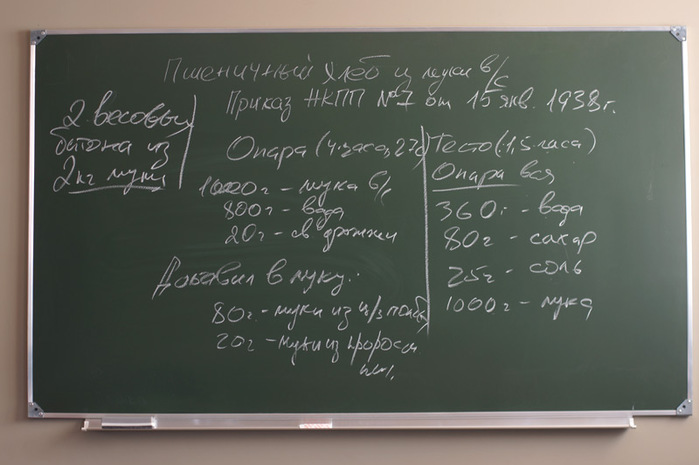 Пшеничный хлеб из муки в/с
Приказ НКПП №7 от 15 янв. 1938г.
2 весовых
батона из
2кг муки
Опара (4 часа, 27с)
1000г - мука в/с
800г - вода
20г - св дрожжи
Добавил в муку:
80г - муки из ц/з полбы
20г - муки из пророси
Тесто (1,5 часа)
Опара вся
360г - вода
80г - сахар
25г - соль
1000г - мука